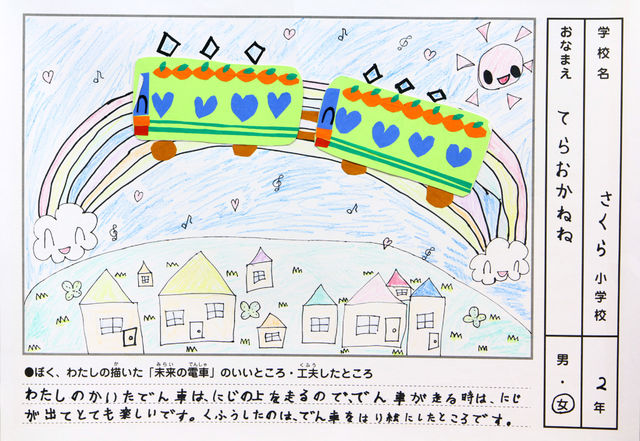 学校名 さくら 小学校 2 年
おなまえ てらおかねね 男・女
●ぼく、わたしの描いた「未来の電車」のいいところ・工夫したところ
わたしのかいたでん車は、にじの上を走るので、でん車がきる時は、にじ
が出てとても楽しいです。くふうしたのは、でん車をはり絵にしたところです。